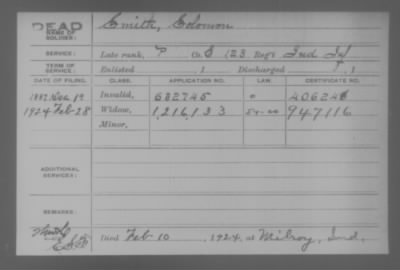 DEAD
NAME OF SOLDIER: Smith, Solomon
SERVICE: Late rank, P Co. E 123 Reg't Ind Inf
TERM OF SERVICE: Enlisted , 1 Discharged , 1
DATE OF FILING. CLASS. APPLICATION NO. LAW. CERTIFICATE NO.
Invalid, 632745
1924 Feb-28 Widow, 1,216,133 947116
Minor,
ADDITIONAL SERVICES:
REMARKS:
Died Feb 10, 1924, at Milroy, Ind.